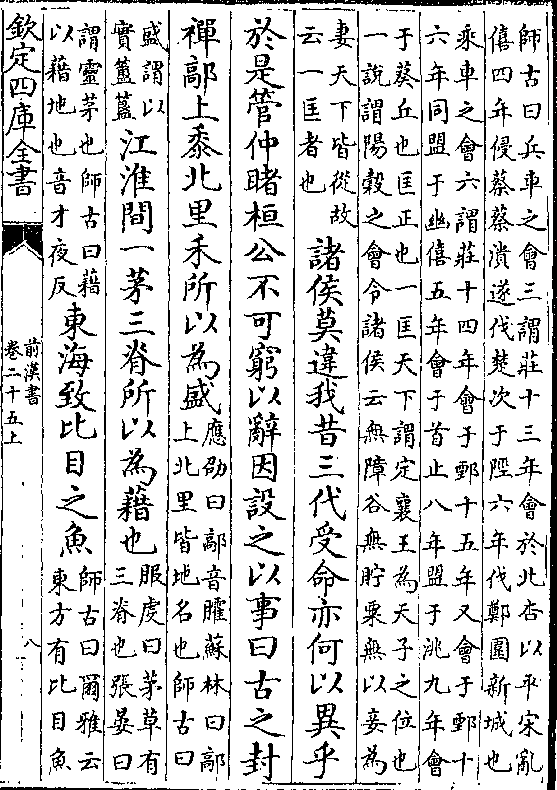 師古曰兵車之會三謂莊十三年會於北杏以平宋亂
僖四年侵蔡蔡潰遂伐楚次于陘六年伐鄭圍新城也
乘車之會六謂莊十四年會于鄄十五年又會于鄄十
六年同盟于幽僖五年會于首止八年盟于洮九年會
于葵丘也匡正也一匡天下謂定襄王為天子之位也
一說謂陽穀之會令諸侯云無障谷無貯粟無以妾為
妻天下皆從故
云一匡者也
諸侯莫違我昔三代受命亦何以異乎
於是管仲睹桓公不可窮以辭因設之以事曰古之封
禪鄗上黍北里禾所以為盛
應劭曰鄗音臛蘇林曰鄗
上北里皆地名也師古曰
盛謂以
實簠簋
江淮間一茅三脊所以為藉也
服虔曰茅草有
三脊也張晏曰
謂靈茅也師古曰藉
以藉地也音才夜反
東海致比目之魚
師古曰爾雅云
東方有比目魚
欽定四庫全書
前漢書
卷二十五上
八